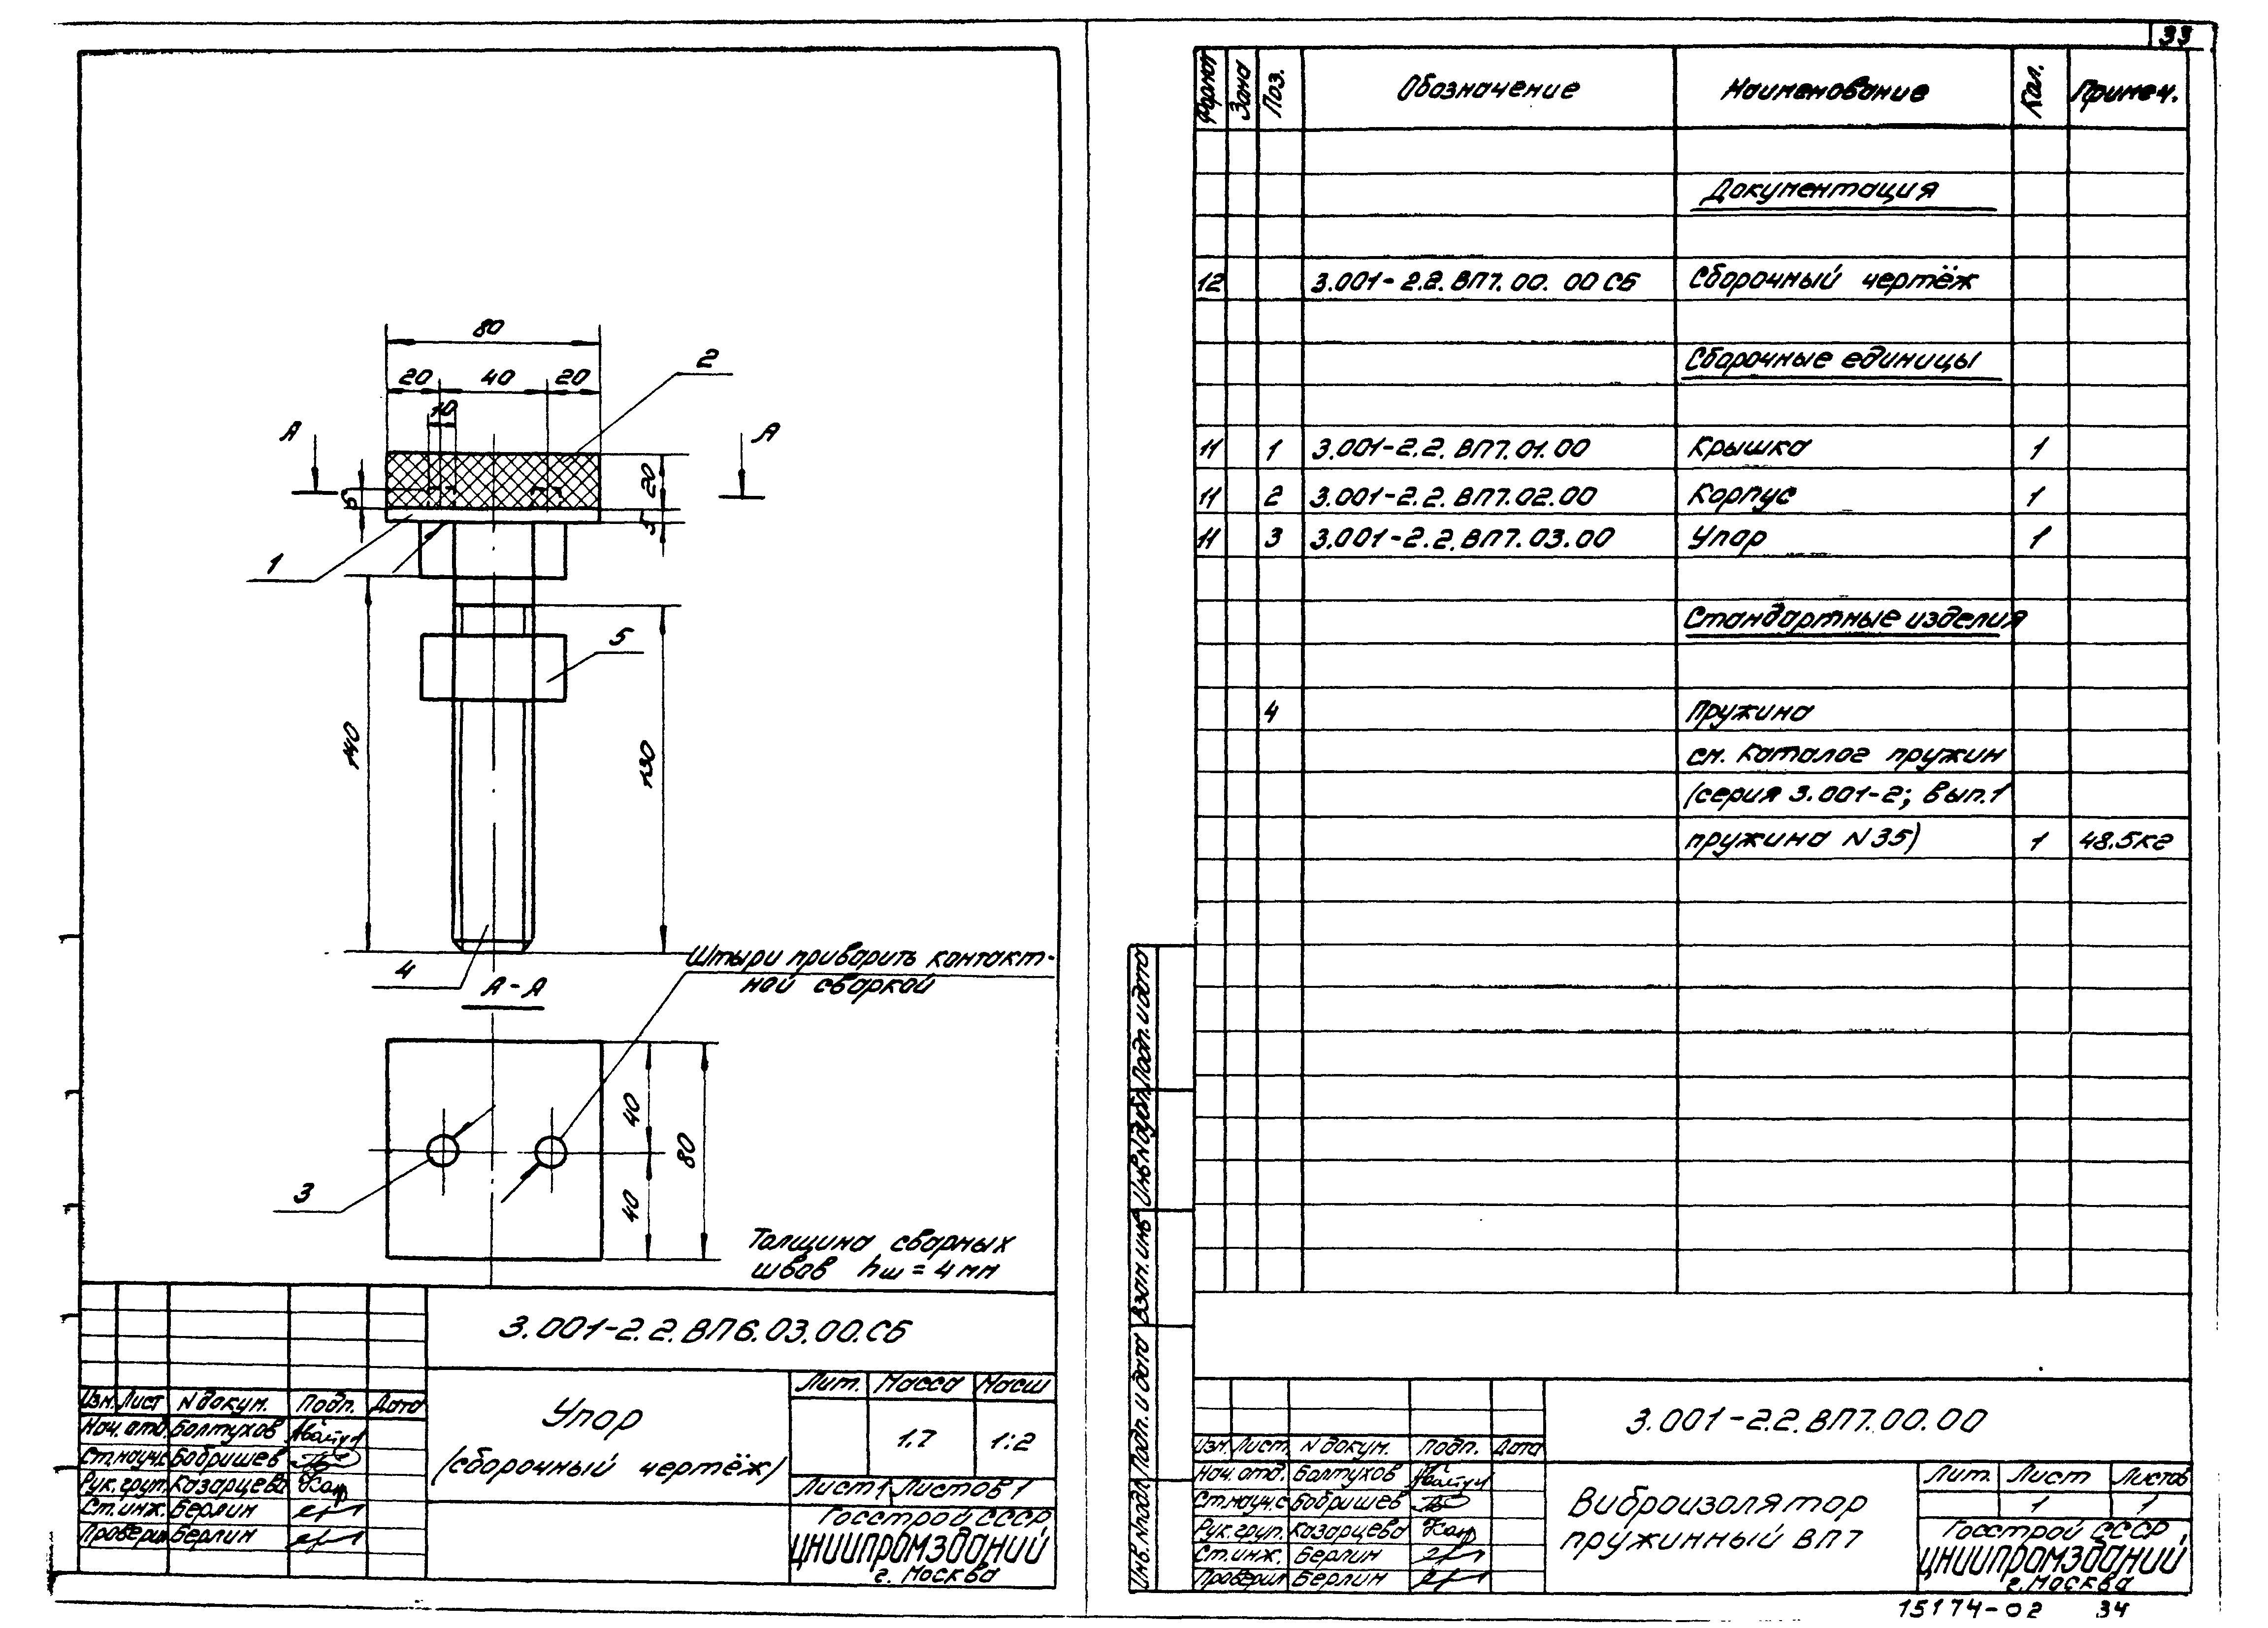 33
80
20 40 20
10
2
А А
5
20
5
1
5
140
130
4
А-А
Штыри приварить контакт-
ной сваркой
40
80
40
3
Толщина сварных
швов hш = 4мм
3.001-2.2.ВП6.03.00.СБ
Упор
(сборочный чертёж)
Лит. Масса Масш
1.7 1:2
Лист 1 Листов 1
Госстрой СССР
ЦНИИПРОМЗДАНИЙ
г. Москва
Изм. Лист N докум. Подп. Дата
Нач. отд. Болтухов
Ст.науч.с Бобришев
Рук.груп. Казарцева
Ст.инж. Берлин
Проверил Берлин
Формат Зона Поз. Обозначение Наименование Кол. Примеч.
Документация
12 3.001-2.2.ВП7.00.00СБ Сборочный чертёж
Сборочные единицы
11 1 3.001-2.2.ВП7.01.00 Крышка 1
11 2 3.001-2.2.ВП7.02.00 Корпус 1
11 3 3.001-2.2.ВП7.03.00 Упор 1
Стандартные изделия
4 Пружина
см. каталог пружин
(серия 3.001-2; вып.1
пружина N35) 1 48.5кг
Инв.Nподл. Подп. и дата Взам.инв Инв.Nдубл. Подп. и дата
3.001-2.2.ВП7.00.00
Изм. Лист. N докум. Подп. Дата
Нач. отд. Болтухов
Ст.науч.с Бобришев
Рук.груп. Казарцева
Ст.инж. Берлин
Проверил Берлин
Виброизолятор
пружинный ВП7
Лит. Лист Листов
1 1
Госстрой СССР
ЦНИИПРОМЗДАНИЙ
г. Москва
15174-02 34